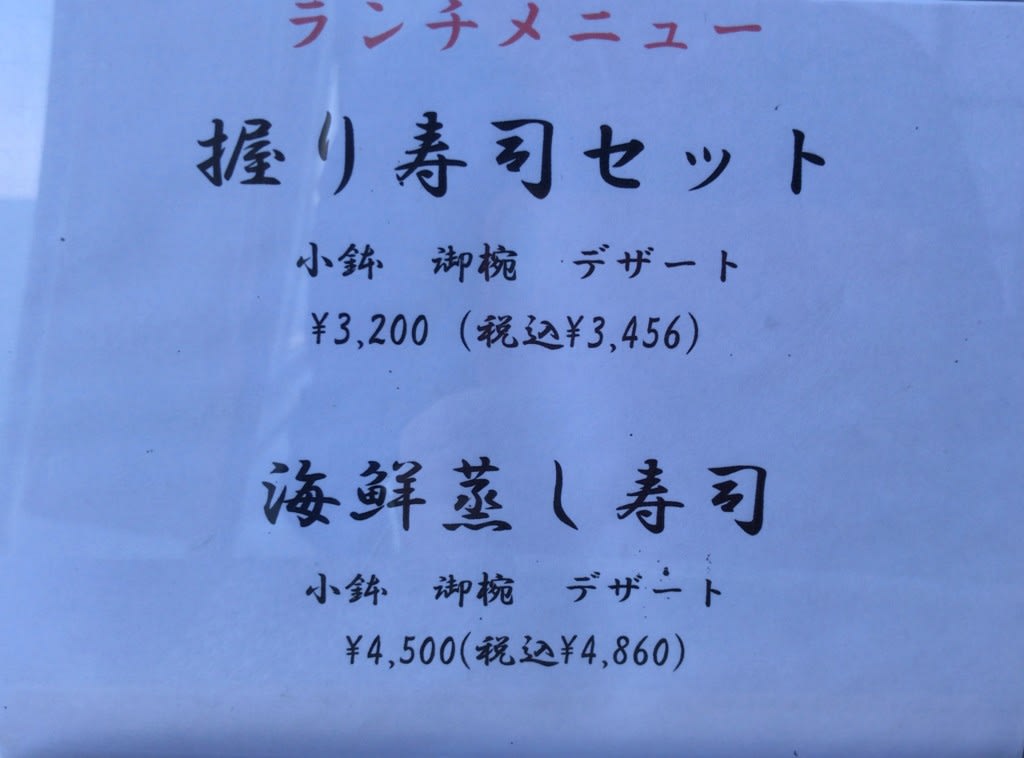 ランチメニュー
握り寿司セット
小鉢 御椀 デザート
¥3,200 (税込¥3,456)
海鮮蒸し寿司
小鉢 御椀 デザート
¥4,500(税込¥4,860)